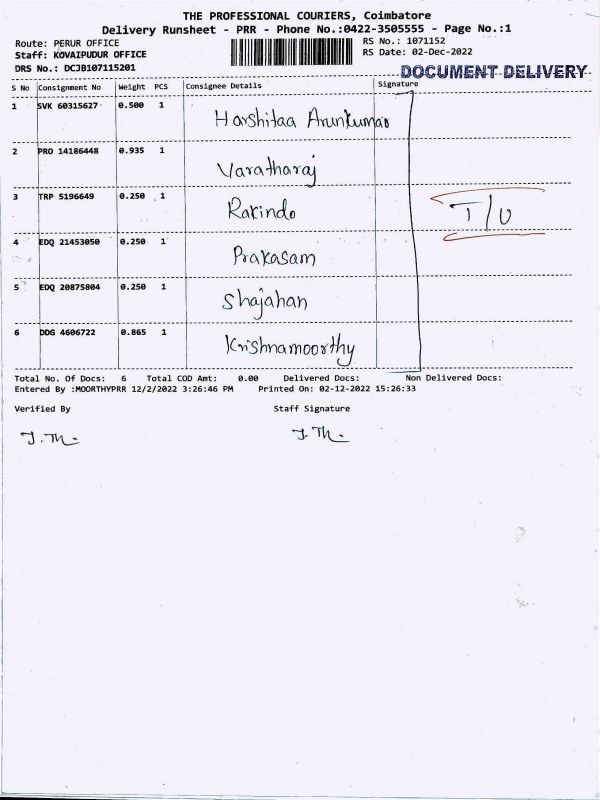 THE PROFESSIONAL COURIERS, Coimbatore
Delivery Runsheet - PRR - Phone No.:0422-3505555 - Page No.:1
Route: PERUR OFFICE
RS No.: 1071152
Staff: KOVAIPUDUR OFFICE
RS Date: 02-Dec-2022
DRS No.: DCJB107115201
DOCUMENT DELIVERY
S No Consignment No Weight PCS Consignee Details Signature
1 SVK 60315627 0.500 1 Harshitaa Arunkumar
2 PRO 14186448 0.935 1 Varatharaj
3 TRP 5196649 0.250 1 Rakindo T/U
4 EDQ 21453050 0.250 1 Prakasam
5 EDQ 20875804 0.250 1 Shajahan
6 DDG 4606722 0.865 1 Krishnamoorthy
Total No. Of Docs: 6 Total COD Amt: 0.00 Delivered Docs: Non Delivered Docs:
Entered By :MOORTHYPRR 12/2/2022 3:26:46 PM Printed On: 02-12-2022 15:26:33
Verified By Staff Signature